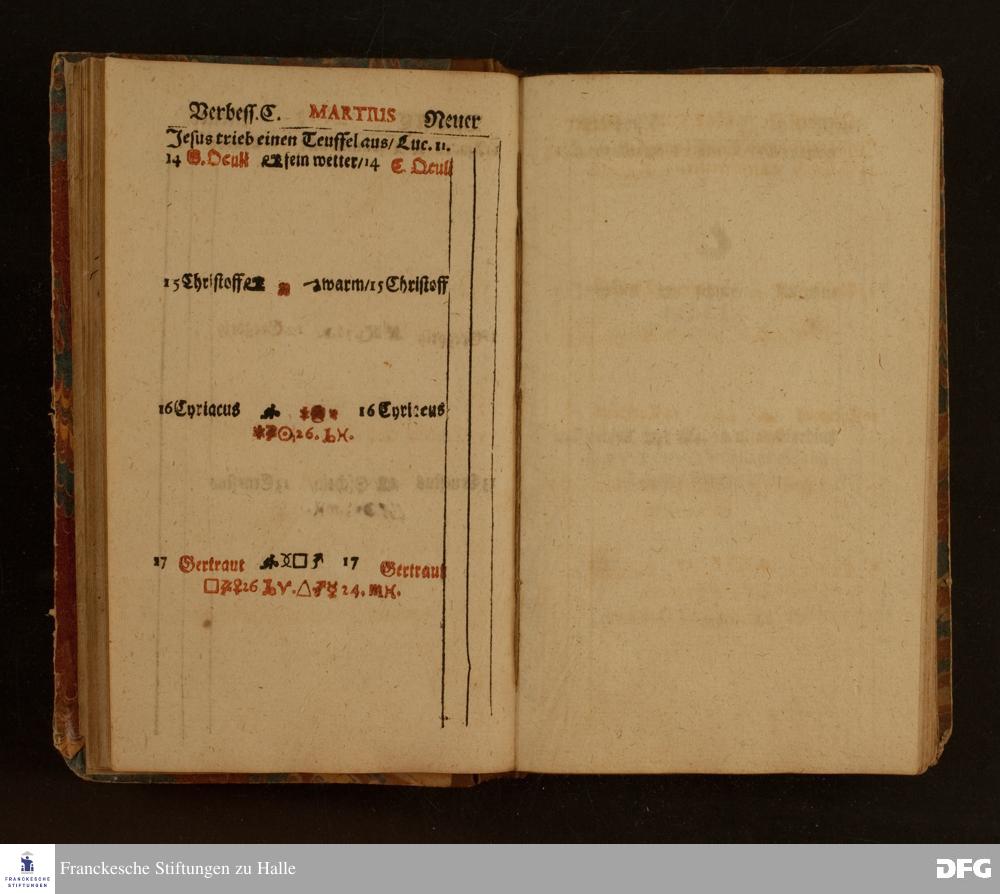 Verbess. C. MARTIUS Neuer
Jesus trieb einen Teuffel aus/ Luc. 11.
14 G. Oculi fein wetter/ 14 C. Oculi
15 Christoff warm/ 15 Christoff
16 Cyriacus 16 Cyriacus
☉ 26. ♓.
17 Gertraut □ 17 Gertraut
□ ♀ 26 ♈. △ ☿ 24. ♏ ♓.
FRANCKESCHE
STIFTUNGEN
Franckesche Stiftungen zu Halle
DFG